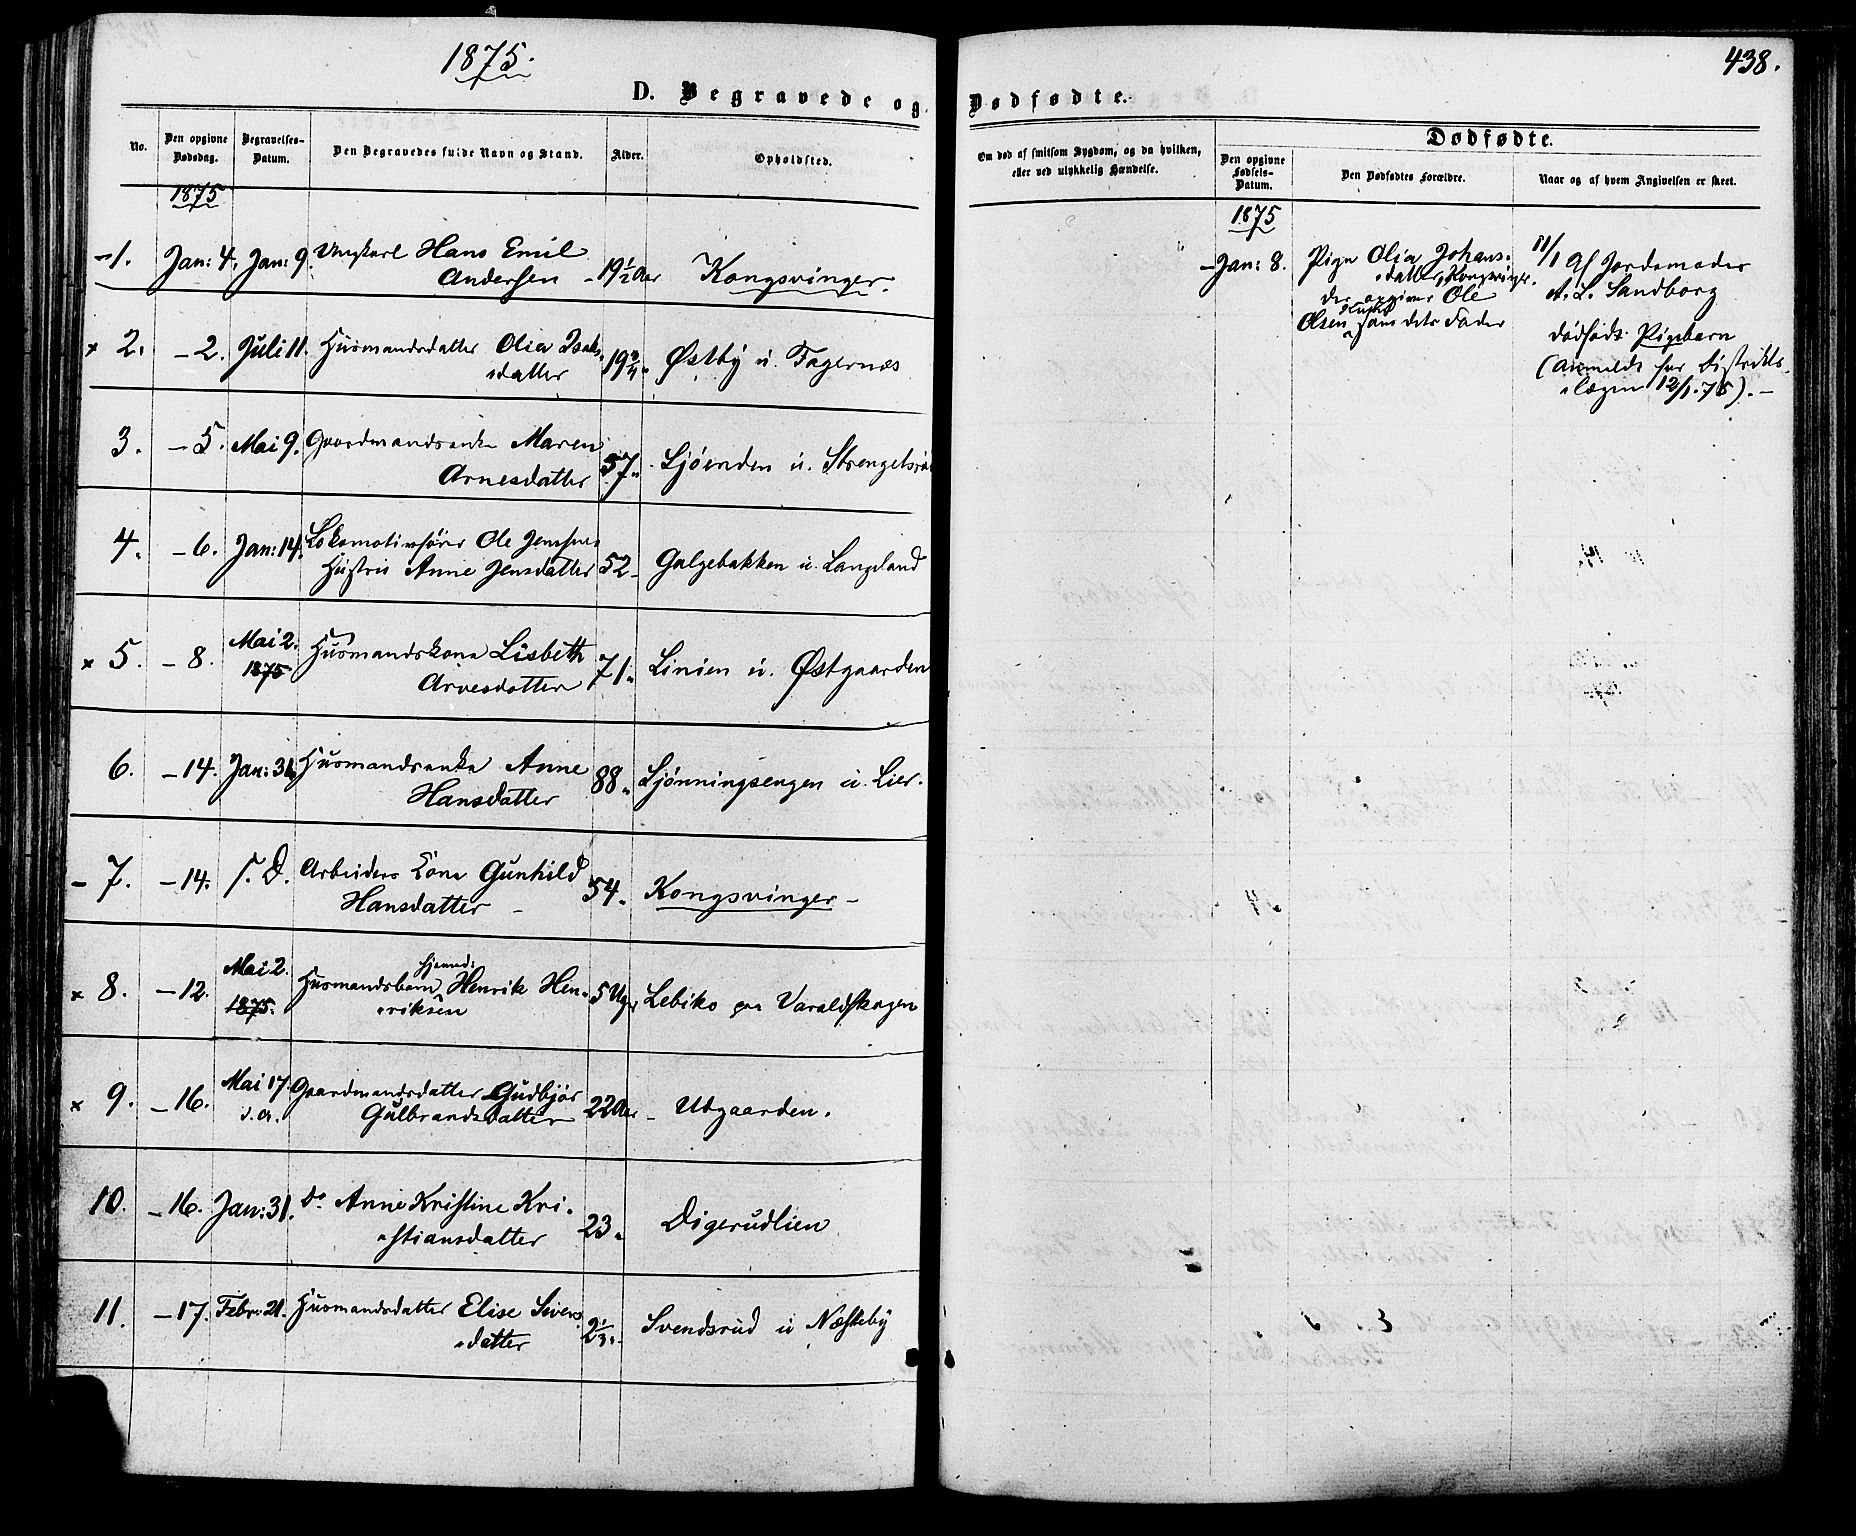 1875.
438.
D. Begravede og
Dødfødte.
No.
Den opgivne Dødsdag.
Begravelses-Datum.
Den Begravedes fulde Navn og Stand.
Alder.
Opholdsted.
Om død af smitsom Sygdom, og da hvilken,
eller ved ulykkelig Hændelse.
Dødfødte.
Den opgivne Fødsels-Datum.
Den Dødfødtes Forældre.
Naar og af hvem Angivelsen er skeet.
1875
1. Jan: 4. Jan: 9. Ungkarl Hans Emil
Andersen 19½ Aar Kongsvinger.
x 2. – 2. Juli 11. Husmandsdatter Olia Isaks
datter 19¾ Østby u. Fagernæs
3. – 5. Mai 9. Gaardmandsenke Maren
Arnesdatter 57 Ljøenden u.
4. – 6. Jan: 14. Lokomotivfører Ole Jensens
Hustru Anne Jensdatter 52 Galgebakken u. Langeland
x 5. – 8. Mai 2. Husmandskone Lisbeth
1875 Arnesdatter 71 Linien u. Østgaarden
6. – 14. Jan: 31. Husmandsenke Anne
Hansdatter 88 Ljønningsengen u. Lier.
– 7. – 14. s. D. Arbeiders Kone Gunhild
Hansdatter 54 Kongsvinger –
x 8. – 12. Mai 2. Husmandsbarn hjemmed: Henrik Hen-
1875. riksen 5 Uger Lebiko paa Varaldskogen
x 9. – 16. Mai 17. Gaardmandsdatter Gudbjør
s. A. Gulbrandsdatter 22 Aar – Utgaarden.
10. – 16. Jan: 31. Do Anne Kristine Kri-
stiansdatter 23 Digerudlien
11. – 17. Febr: 21. Husmandsdatter Elise Sivers
datter 2⅓ Svendsrud u Næsteby
1875
– Jan: 8. Pige Olia Johans-
datter, Kongsvinger.
der opgiver Ole
Olsen som dets Fader
11/1 af Jordemoder
A. L. Sandborg
dødfødt Pigebarn
(anmeldt for Distrikts-
lægen 12/1. 75). –